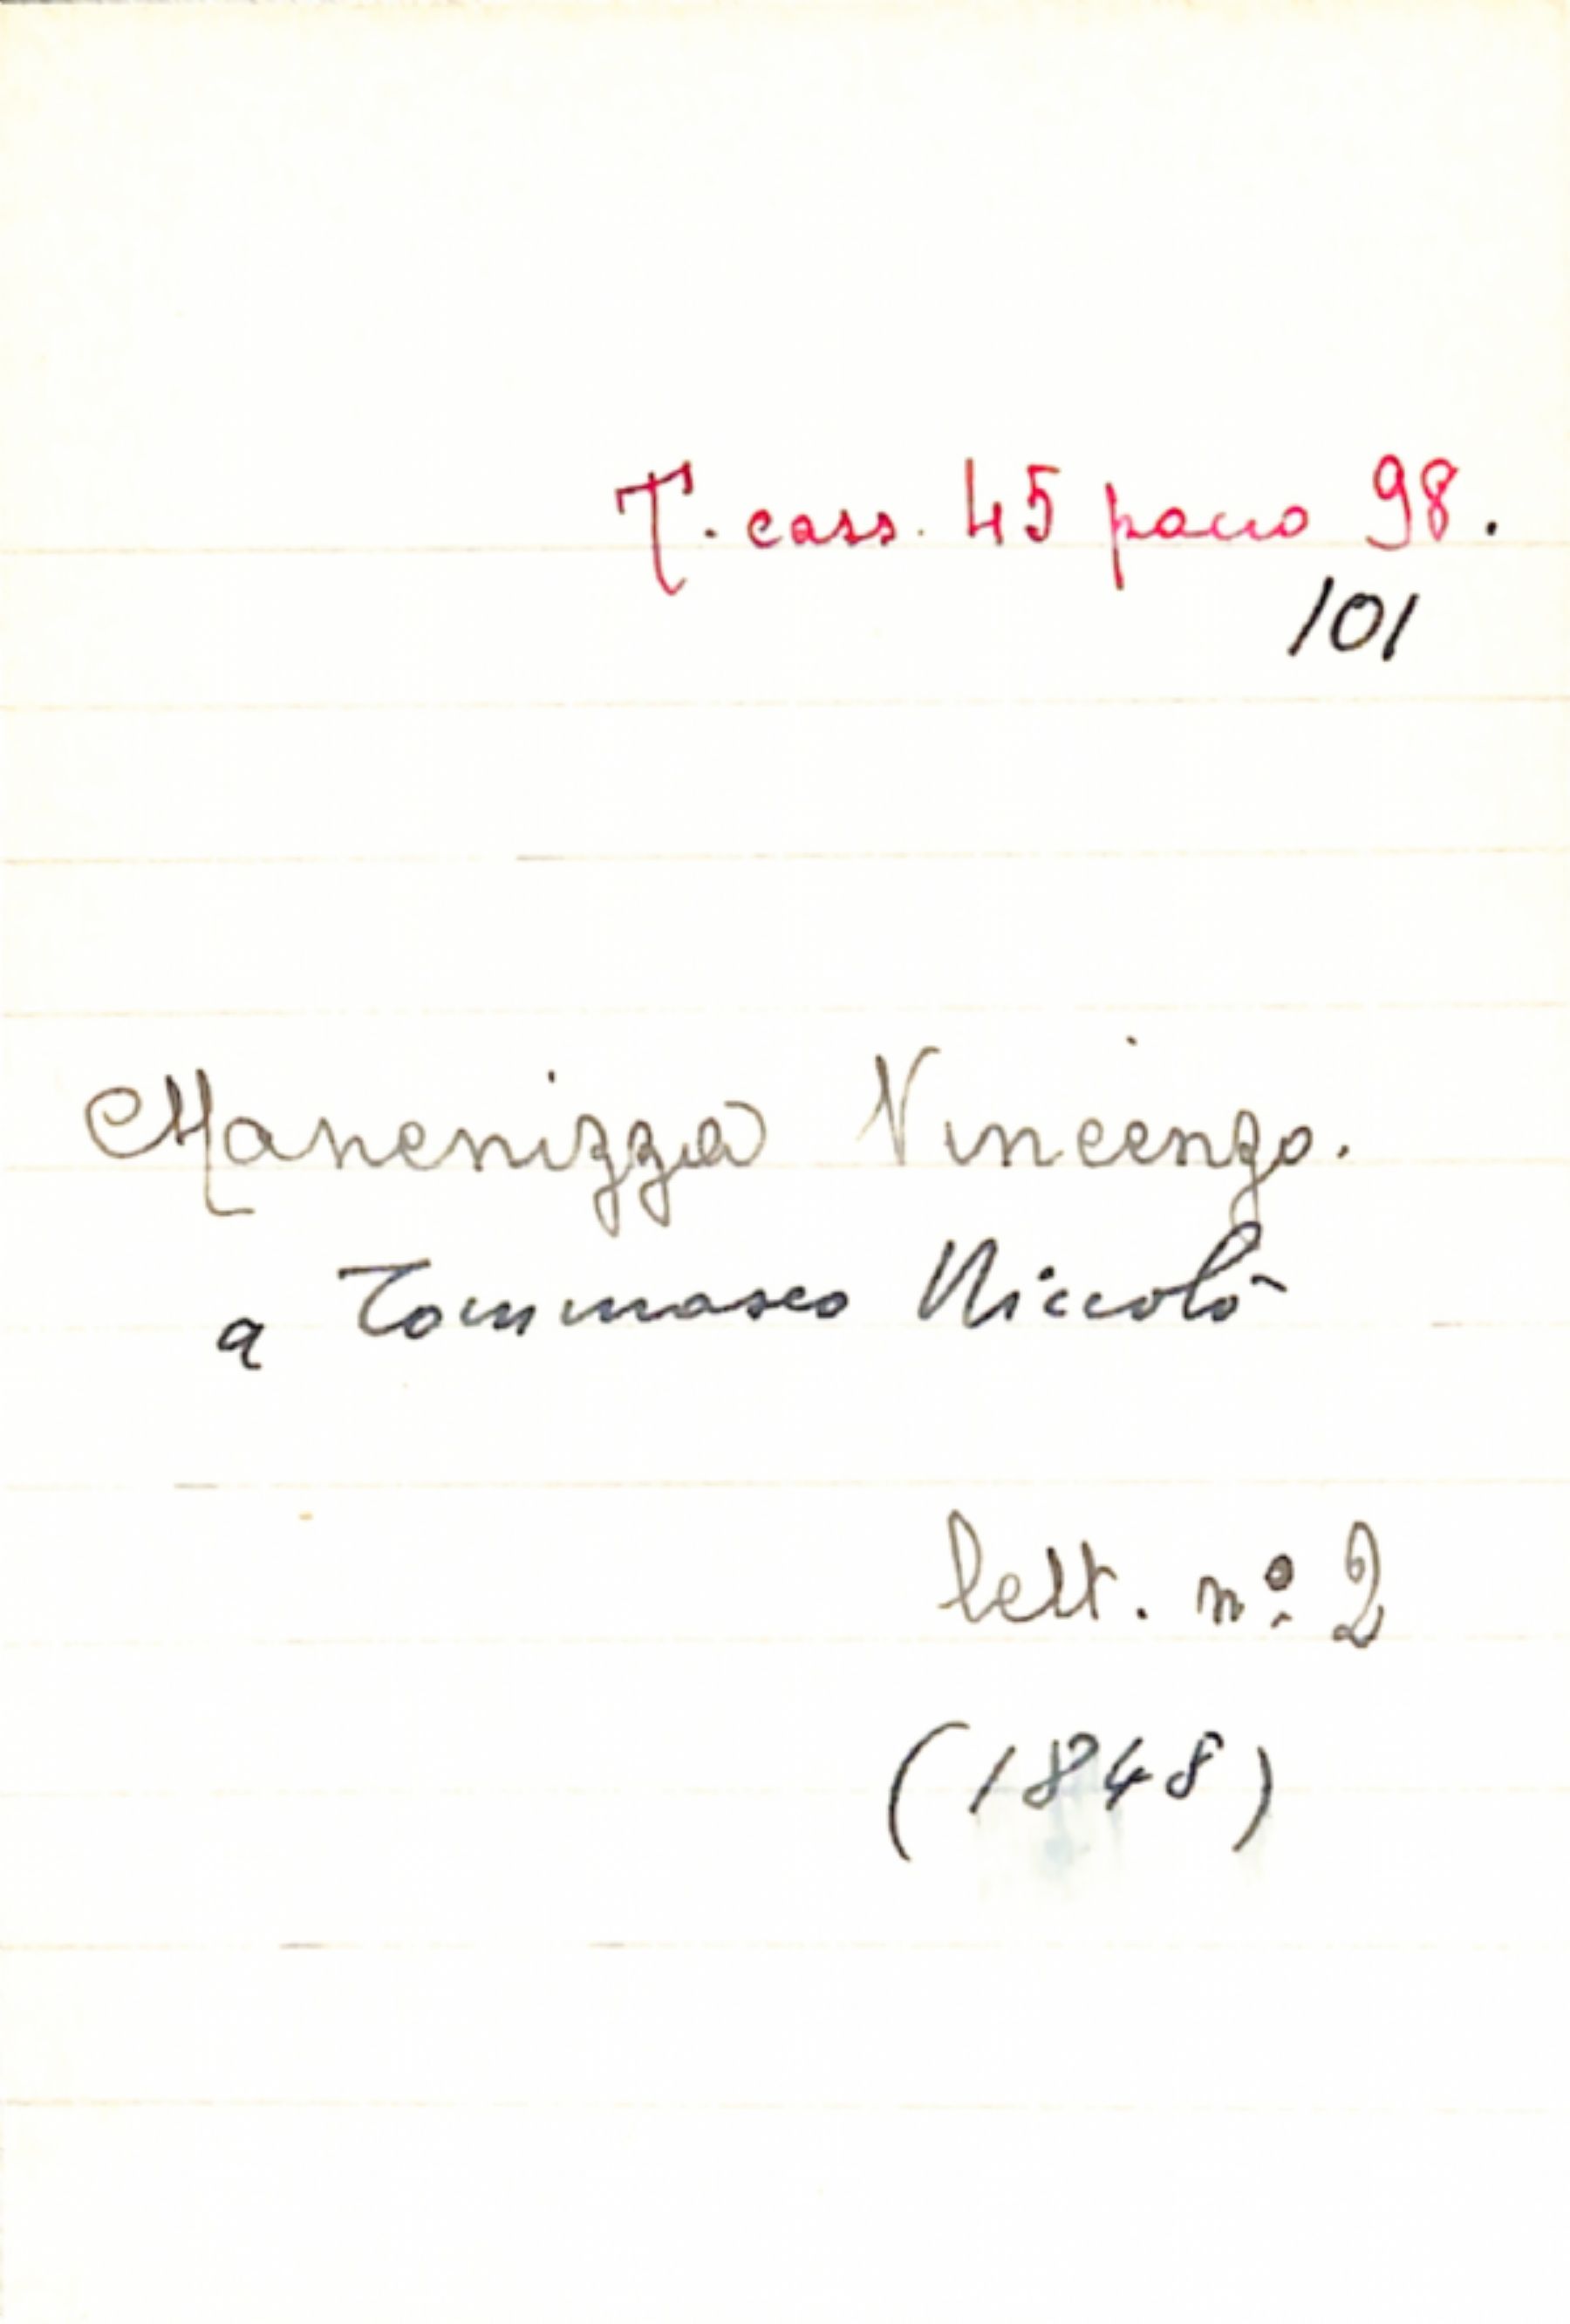 T. cass. 45 pacco 98.
101
Manenizza Vincenzo.
a Tommaseo Niccolò
lett. nº 2
(1848)